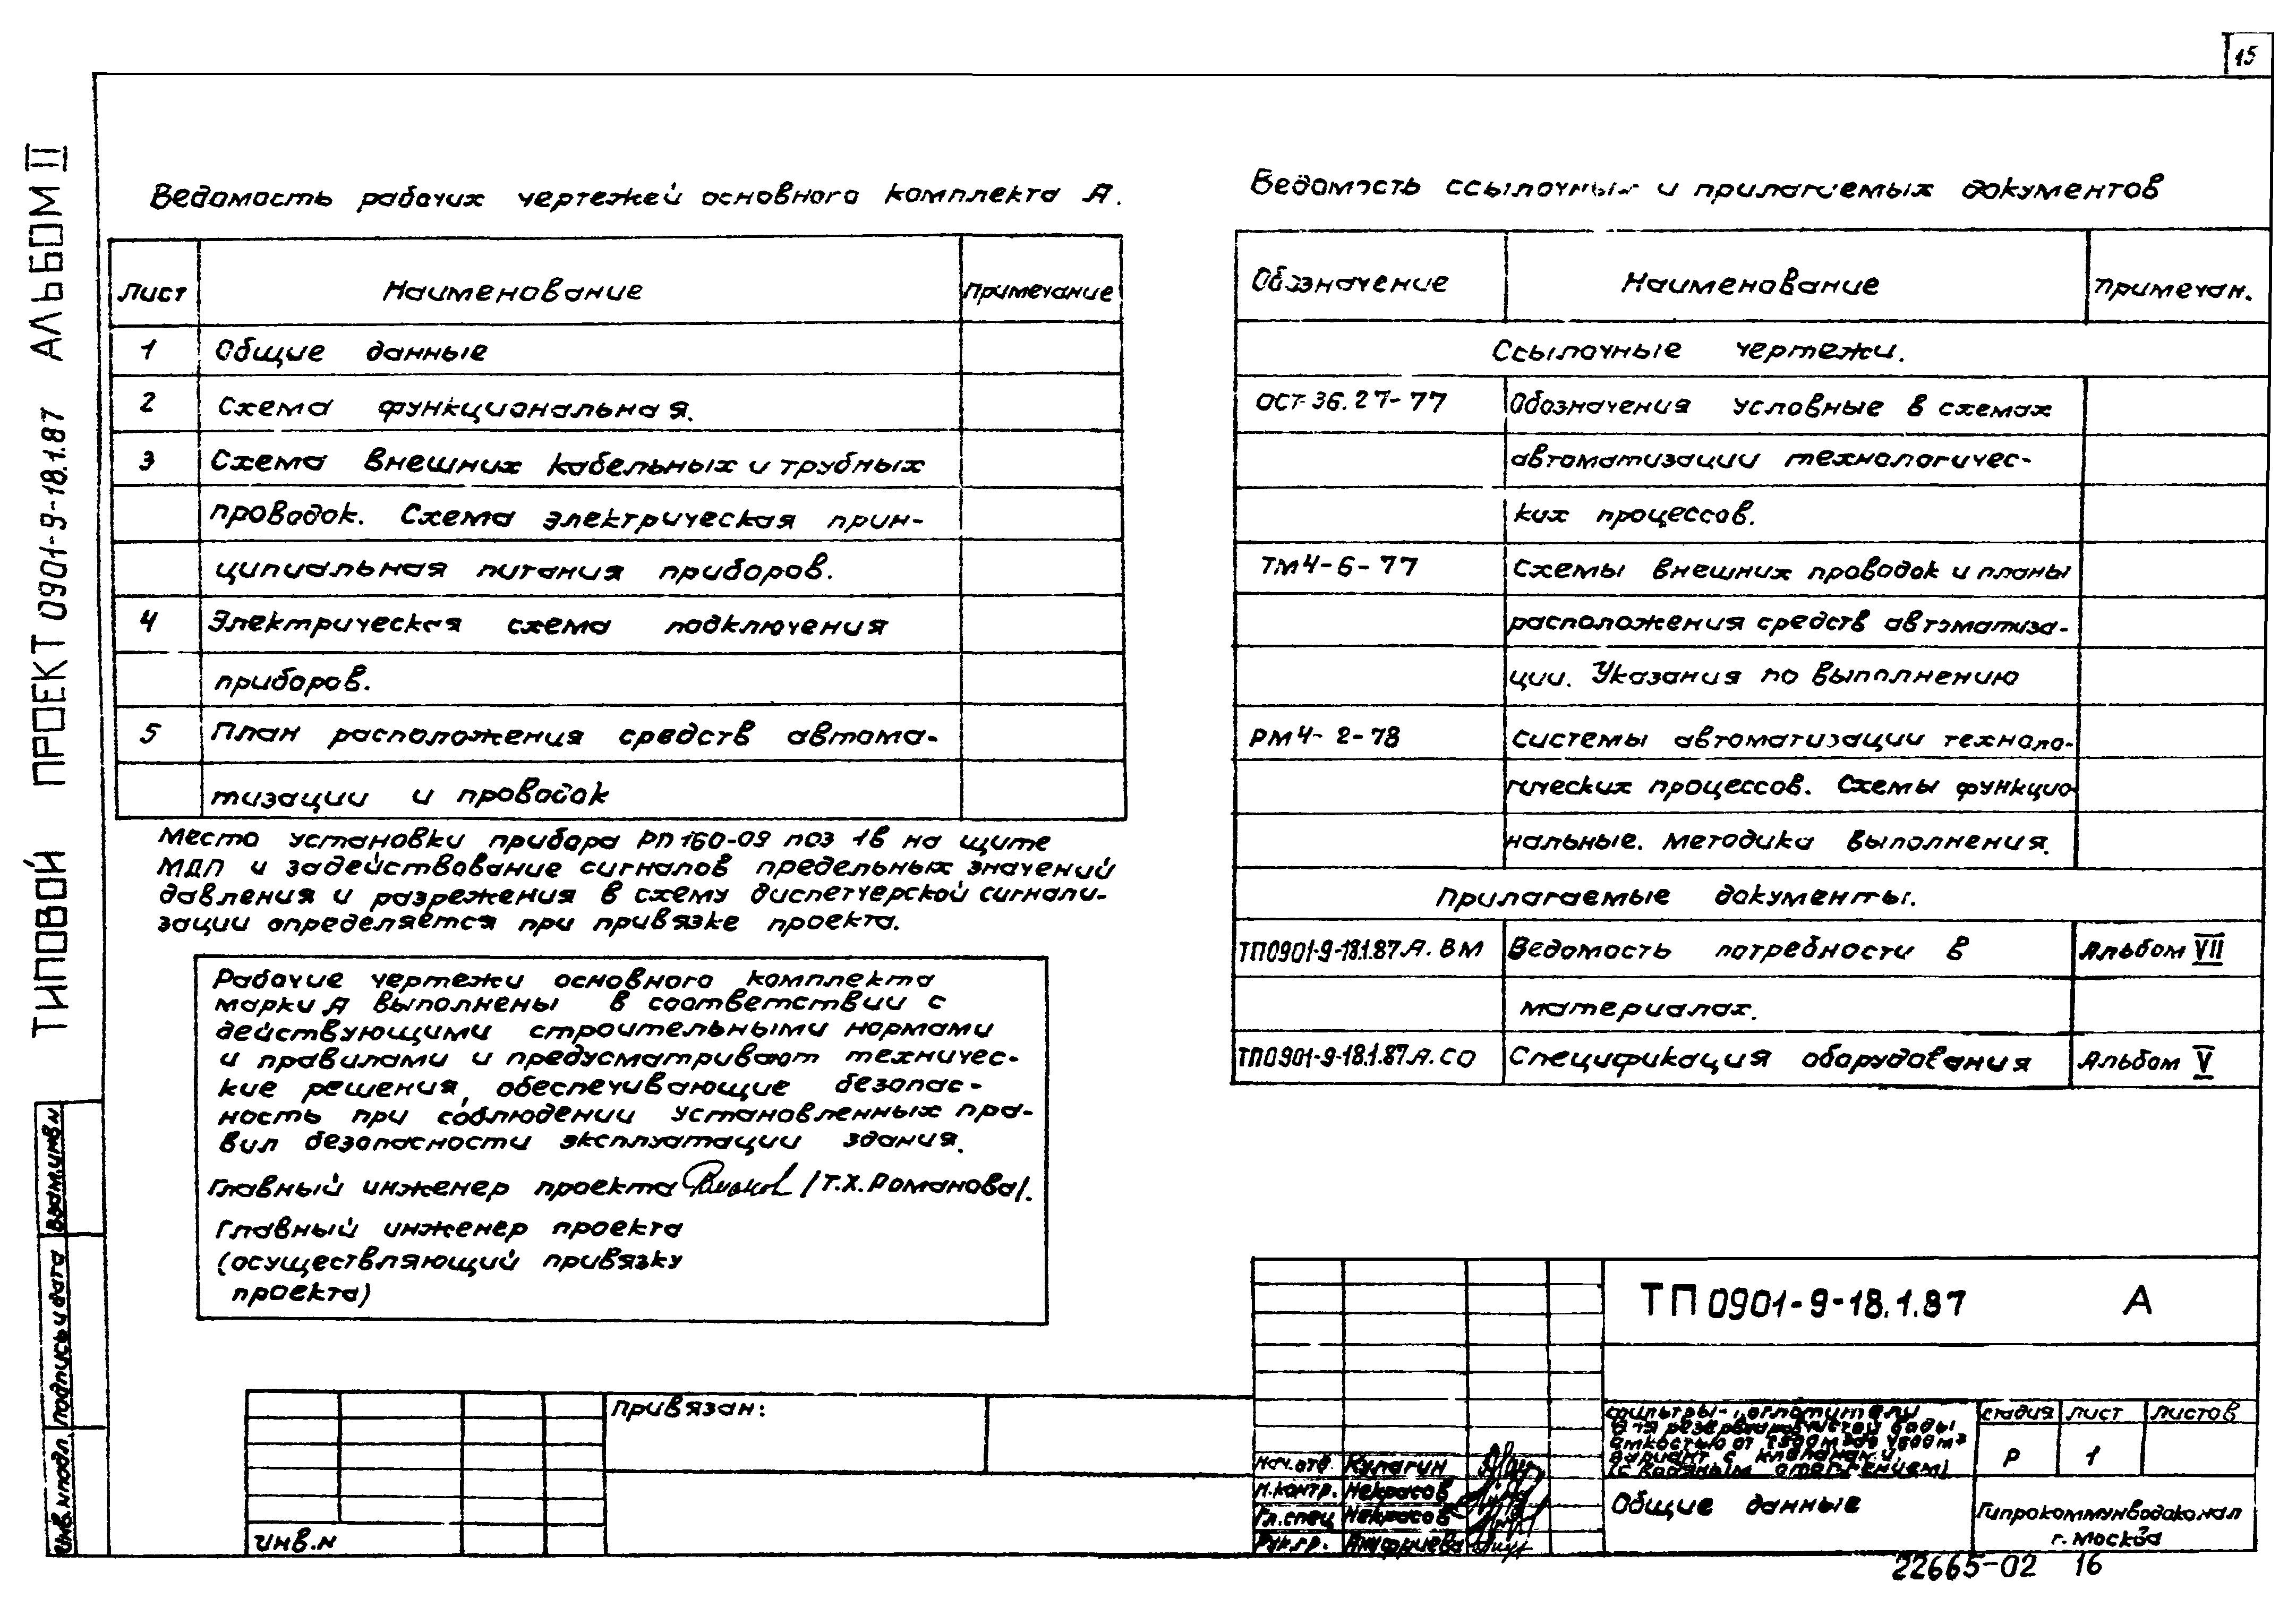 15
ТИПОВОЙ ПРОЕКТ 0901-9-18.1.87 АЛЬБОМ II
Ведомость рабочих чертежей основного комплекта А.
Лист Наименование Примечание
1 Общие данные
2 Схема функциональная.
3 Схема внешних кабельных и трубных
проводок. Схема электрическая прин-
ципиальная питания приборов.
4 Электрическая схема подключения
приборов.
5 План расположения средств автома-
тизации и проводок
Место установки прибора РП160-09 поз 1в на щите
МДП и задействование сигналов предельных значений
давления и разрежения в схему диспетчерской сигнали-
зации определяется при привязке проекта.
Рабочие чертежи основного комплекта
марки А выполнены в соответствии с
действующими строительными нормами
и правилами и предусматривают техничес-
кие решения, обеспечивающие безопас-
ность при соблюдении установленных пра-
вил безопасности эксплуатации здания.
Главный инженер проекта /Т.Х.Романова/.
Главный инженер проекта
(осуществляющий привязку
проекта)
Ведомость ссылочных и прилагаемых документов
Обозначение Наименование примечан.
Ссылочные чертежи.
ОСТ 36.27-77 Обозначения условные в схемах
автоматизации технологичес-
ких процессов.
ТМ4-6-77 Схемы внешних проводок и планы
расположения средств автоматиза-
ции. Указания по выполнению
РМ4-2-78 Системы автоматизации техноло-
гических процессов. Схемы функцио
нальные. Методика выполнения.
Прилагаемые документы.
ТП0901-9-18.1.87.А.ВМ Ведомость потребности в Альбом VII
материалах.
ТП0901-9-18.1.87.А.СО Спецификация оборудования Альбом V
Взам.инв.N
Подпись и дата
Инв.N подл.
Привязан:
Инв.N
ТП 0901-9-18.1.87 А
Фильтры-поглотители
для резервуаров чистой воды
емкостью от до
вариант с клапанами
(с водяным отоплением)
Стадия Лист Листов
Р 1
Нач.отд. Кулагин
Н.контр. Некрасов
Гл.спец Некрасов
Рук.гр. Ануфриева
Общие данные
Гипрокоммунводоканал
г. Москва
22665-02 16